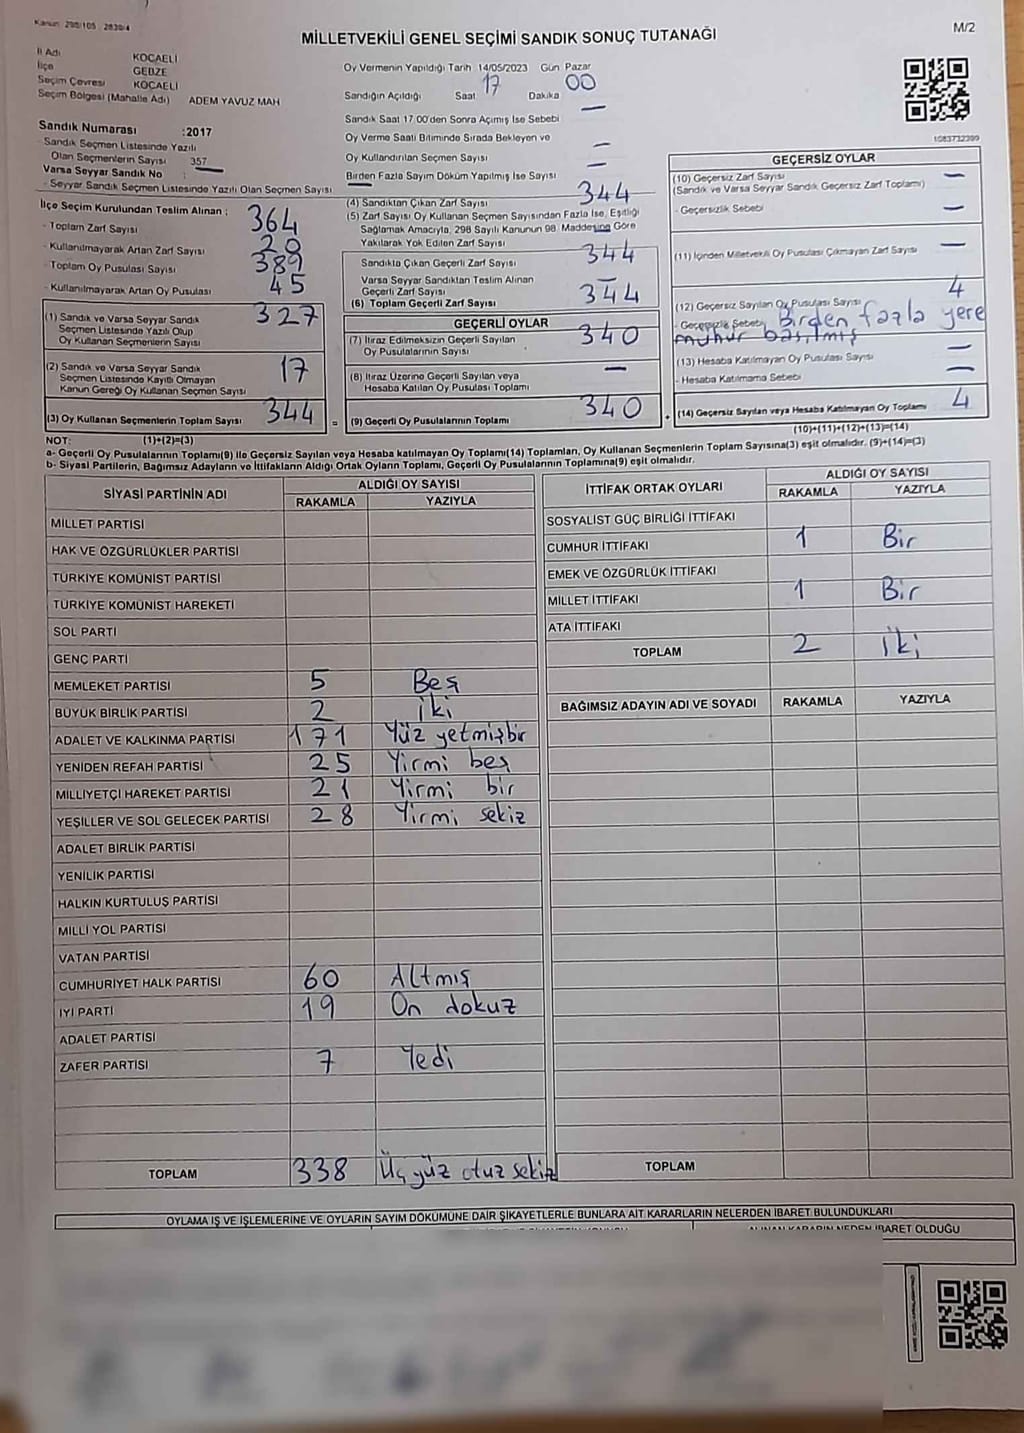 Kanun: 298/105 , 2839/4
M/2
MİLLETVEKİLİ GENEL SEÇİMİ SANDIK SONUÇ TUTANAĞI
İl Adı KOCAELİ
İlçe GEBZE
Seçim Çevresi KOCAELİ
Seçim Bölgesi (Mahalle Adı) ADEM YAVUZ MAH
Sandık Numarası :2017
- Sandık Seçmen Listesinde Yazılı
Olan Seçmenlerin Sayısı 357
Varsa Seyyar Sandık No :
- Seyyar Sandık Seçmen Listesinde Yazılı Olan Seçmen Sayısı
Oy Vermenin Yapıldığı Tarih 14/05/2023 Gün Pazar
Sandığın Açıldığı Saat 17 Dakika 00
Sandık Saat 17:00'den Sonra Açımış İse Sebebi —
Oy Verme Saati Bitiminde Sırada Bekleyen ve
Oy Kullandırılan Seçmen Sayısı —
Birden Fazla Sayım Döküm Yapılmış İse Sayısı —
1083732399
İlçe Seçim Kurulundan Teslim Alınan ;
- Toplam Zarf Sayısı 364
- Kullanılmayarak Artan Zarf Sayısı 20
- Toplam Oy Pusulası Sayısı 389
- Kullanılmayarak Artan Oy Pusulası 45
(1) Sandık ve Varsa Seyyar Sandık
Seçmen Listesinde Yazılı Olup
Oy Kullanan Seçmenlerin Sayısı 327
(2) Sandık ve Varsa Seyyar Sandık
Seçmen Listesinde Kayıtlı Olmayan
Kanun Gereği Oy Kullanan Seçmen Sayısı 17
(3) Oy Kullanan Seçmenlerin Toplam Sayısı 344 =
(4) Sandıktan Çıkan Zarf Sayısı 344
(5) Zarf Sayısı Oy Kullanan Seçmen Sayısından Fazla İse, Eşitliği
Sağlamak Amacıyla, 298 Sayılı Kanunun 98. Maddesine Göre
Yakılarak Yok Edilen Zarf Sayısı —
Sandıkta Çıkan Geçerli Zarf Sayısı 344
Varsa Seyyar Sandıktan Teslim Alınan
Geçerli Zarf Sayısı —
(6) Toplam Geçerli Zarf Sayısı 344
GEÇERLİ OYLAR
(7) İtiraz Edilmeksizin Geçerli Sayılan
Oy Pusulalarının Sayısı 340
(8) İtiraz Üzerine Geçerli Sayılan veya
Hesaba Katılan Oy Pusulası Toplamı —
(9) Geçerli Oy Pusulalarının Toplamı 340 +
GEÇERSİZ OYLAR
(10) Geçersiz Zarf Sayısı —
(Sandık ve Varsa Seyyar Sandık Geçersiz Zarf Toplamı)
- Geçersizlik Sebebi —
(11) İçinden Milletvekili Oy Pusulası Çıkmayan Zarf Sayısı —
(12) Geçersiz Sayılan Oy Pusulası Sayısı 4
- Geçersizlik Sebebi Birden fazla yere
mühür basılmış
(13) Hesaba Katılmayan Oy Pusulası Sayısı —
- Hesaba Katılmama Sebebi —
(14) Geçersiz Sayılan veya Hesaba Katılmayan Oy Toplamı 4
(10)+(11)+(12)+(13)=(14)
NOT: (1)+(2)=(3)
a- Geçerli Oy Pusulalarının Toplamı(9) ile Geçersiz Sayılan veya Hesaba katılmayan Oy Toplamı(14) Toplamları, Oy Kullanan Seçmenlerin Toplam Sayısına(3) eşit olmalıdır. (9)+(14)=(3)
b- Siyasi Partilerin, Bağımsız Adayların ve İttifakların Aldığı Ortak Oyların Toplamı, Geçerli Oy Pusulalarının Toplamına(9) eşit olmalıdır.
SİYASİ PARTİNİN ADI ALDIĞI OY SAYISI
RAKAMLA YAZIYLA
MİLLET PARTİSİ
HAK VE ÖZGÜRLÜKLER PARTİSİ
TÜRKİYE KOMÜNİST PARTİSİ
TÜRKİYE KOMÜNİST HAREKETİ
SOL PARTİ
GENÇ PARTİ
MEMLEKET PARTİSİ 5 Beş
BÜYÜK BİRLİK PARTİSİ 2 İki
ADALET VE KALKINMA PARTİSİ 171 Yüz yetmişbir
YENİDEN REFAH PARTİSİ 25 Yirmi beş
MİLLİYETÇİ HAREKET PARTİSİ 21 Yirmi bir
YEŞİLLER VE SOL GELECEK PARTİSİ 28 Yirmi sekiz
ADALET BİRLİK PARTİSİ
YENİLİK PARTİSİ
HALKIN KURTULUŞ PARTİSİ
MİLLİ YOL PARTİSİ
VATAN PARTİSİ
CUMHURİYET HALK PARTİSİ 60 Altmış
İYİ PARTİ 19 On dokuz
ADALET PARTİSİ
ZAFER PARTİSİ 7 Yedi
TOPLAM 338 Üç yüz otuz sekiz
İTTİFAK ORTAK OYLARI ALDIĞI OY SAYISI
RAKAMLA YAZIYLA
SOSYALİST GÜÇ BİRLİĞİ İTTİFAKI
CUMHUR İTTİFAKI 1 Bir
EMEK VE ÖZGÜRLÜK İTTİFAKI
MİLLET İTTİFAKI 1 Bir
ATA İTTİFAKI
TOPLAM 2 İki
BAĞIMSIZ ADAYIN ADI VE SOYADI RAKAMLA YAZIYLA
TOPLAM
OYLAMA İŞ VE İŞLEMLERİNE VE OYLARIN SAYIM DÖKÜMÜNE DAİR ŞİKAYETLERLE BUNLARA AİT KARARLARIN NELERDEN İBARET BULUNDUKLARI
ALINAN KARARIN NEDEN İBARET OLDUĞU